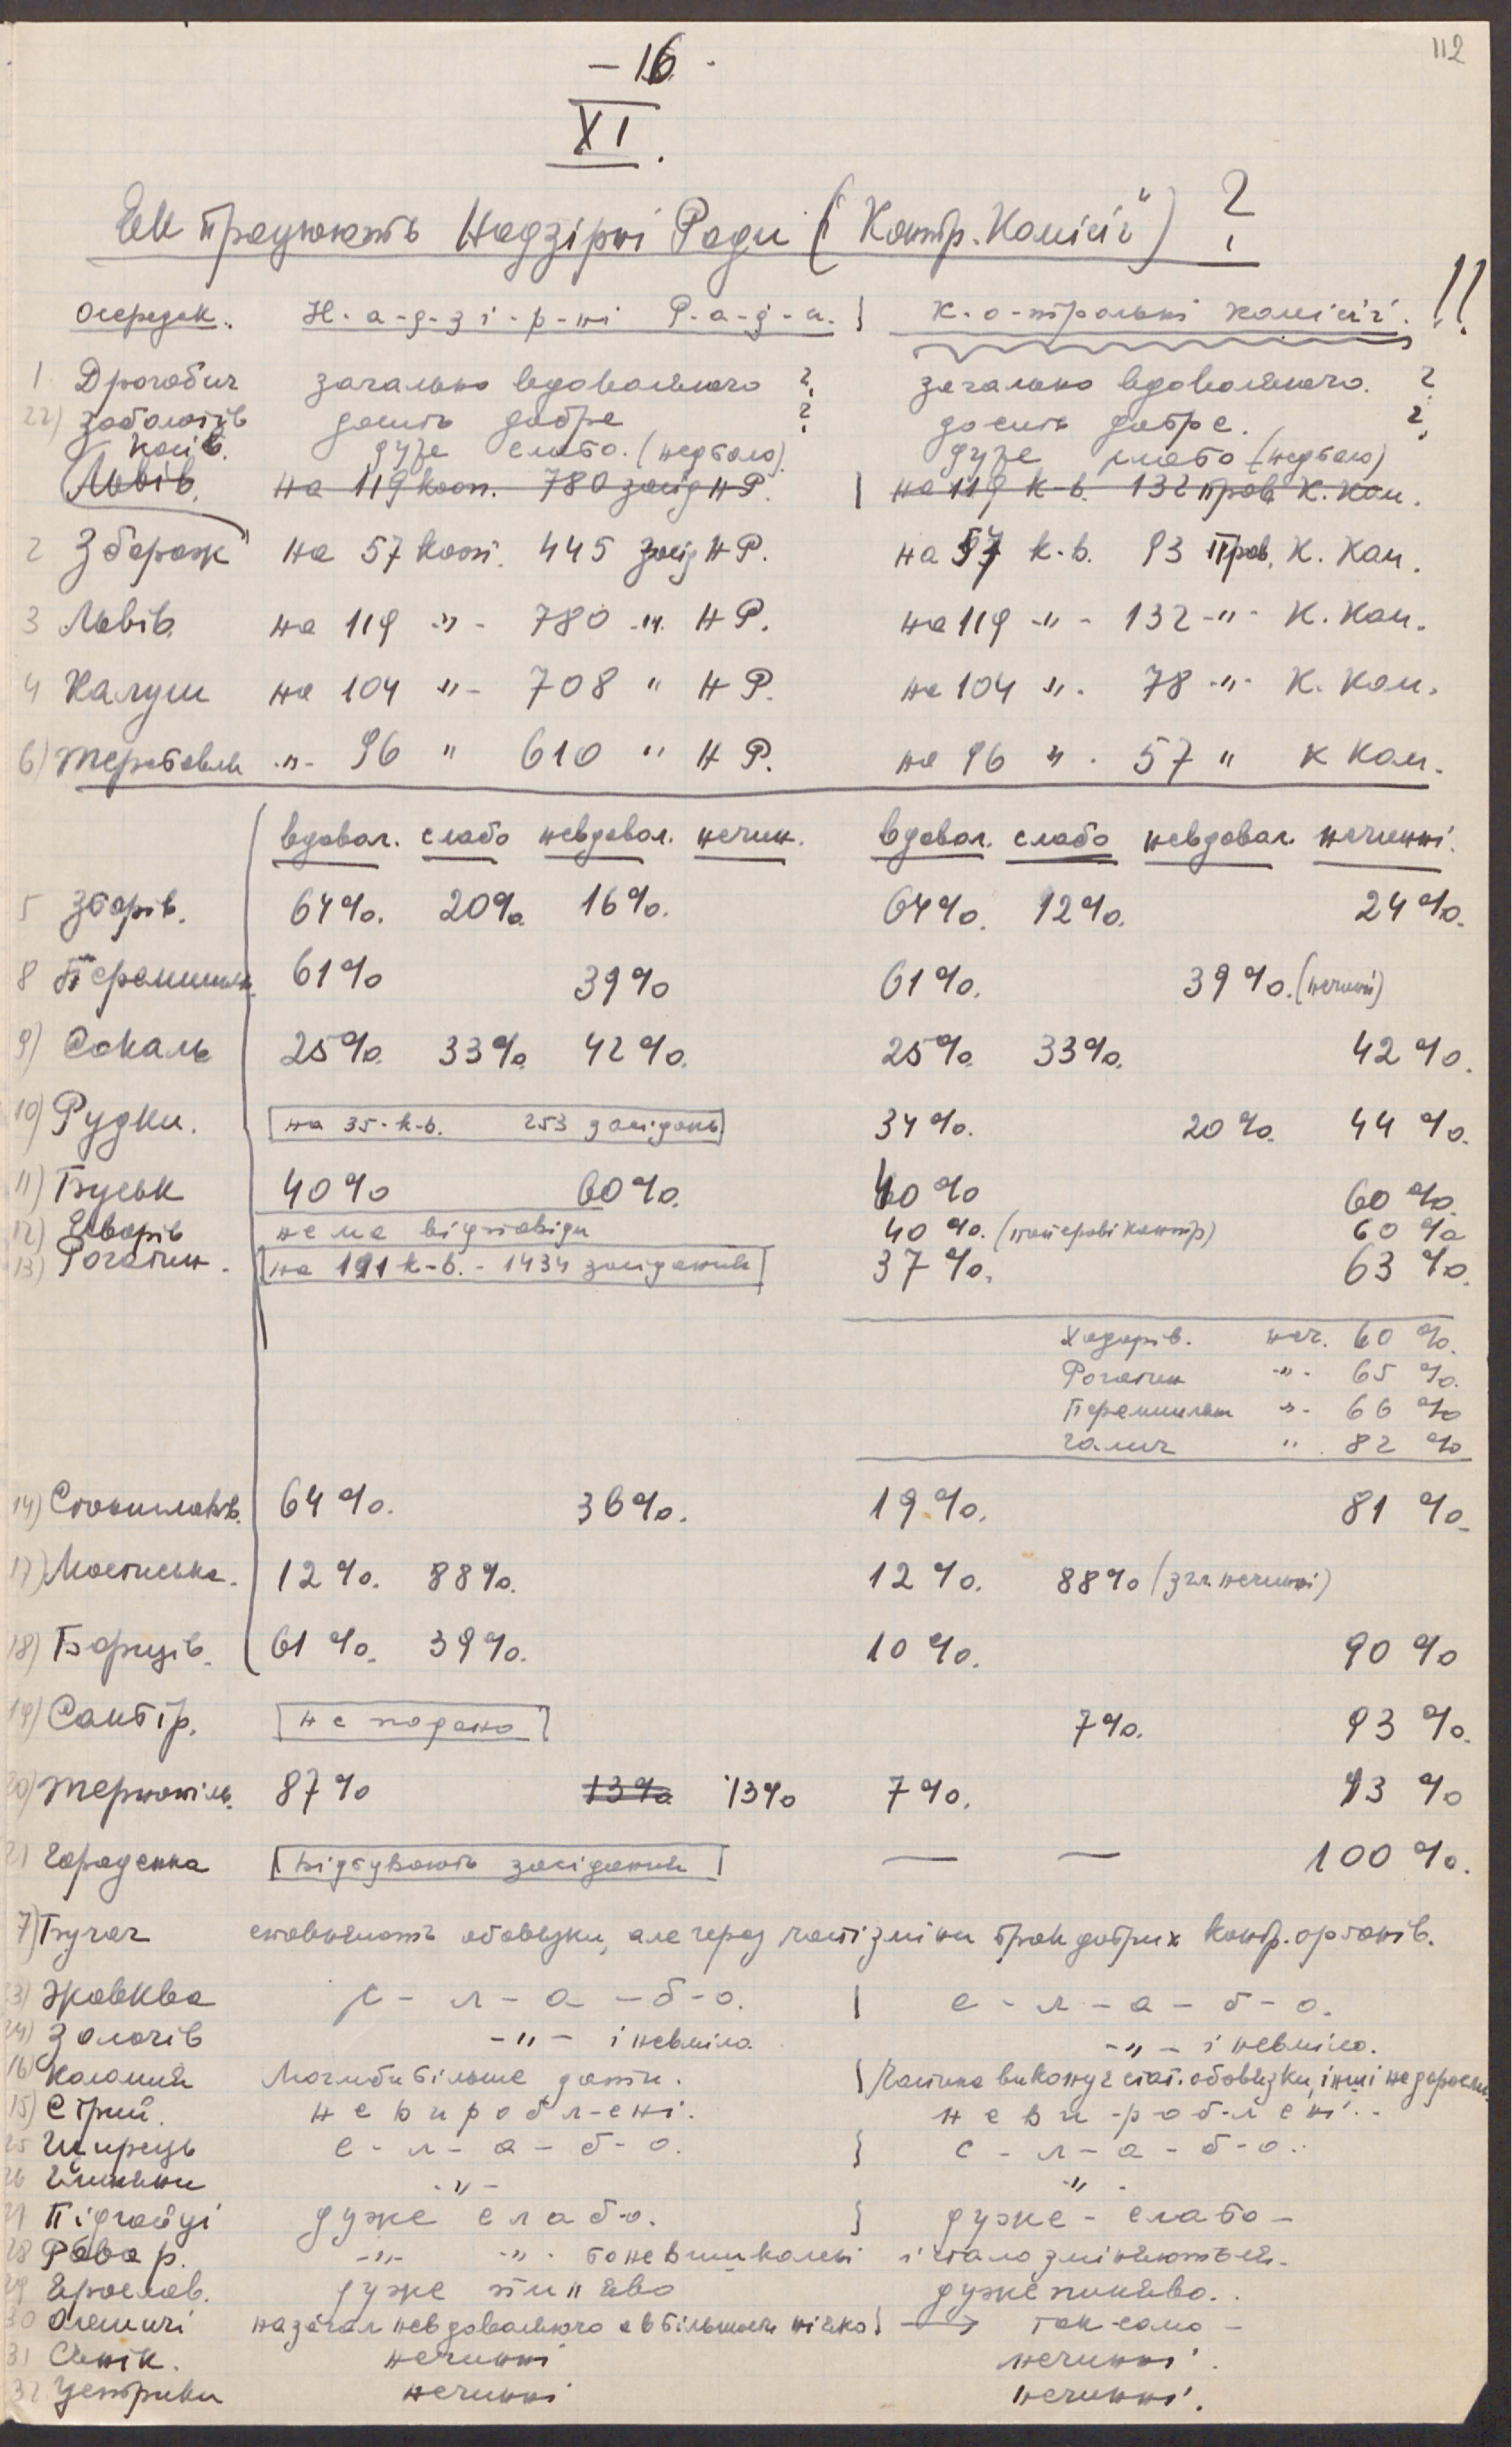 112
– 16 -
XI.
Як працюють Надзірні Ради ("Контр. Комісії") ?
Осередок. Н-а-д-з-і-р-ні Р-а-д-и. } К-о-нтрольні комісії. !!
1 Дрогобич загально вдоволяючо ? загально вдоволяючо. ?
22) Заболотів досить добре ? досить добре. ?
Косів. дуже слабо. (недбало). дуже слабо (недбало)
Львів. на 119 кооп. 780 засід НР. | на 119 к-в. 132 пров. К. Ком.
2 Збараж на 57 кооп. 445 засід НР. на 57 к-в. 93 пров. К. Ком.
3 Львів. на 119 -"- 780 -"- НР. на 119 -"- 132 -"- К. Ком.
4 Калуш на 104 "- 708 " НР. на 104 ". 78 -"- К. Ком.
6) Теребовля -"- 96 " 610 " НР. на 96 " . 57 " К Ком.
вдовол. слабо невдовол. нечин. вдовол. слабо невдовол. нечинні.
5 Зборів. 64%. 20% 16%. 64%. 12%. 24%.
8 Перемишль 61% 39% 61%. 39%. (нечинні)
9) Сокаль 25%. 33%. 42%. 25%. 33%. 42%.
10) Рудки. [на 35-к-в. 253 засідань] 34%. 20%. 44%.
11) Буськ 40% 60%. 40% 60%.
12) Яворів нема відповіди 40%. (паперові контр) 60%
13) Рогатин. [на 191 к-в. - 1434 засідання] 37%. 63%.
Ходорів. неч. 60%.
Рогатин -"- 65%.
Перемишляни "- 66%
Галич " . 82%
14) Станиславів. 64%. 36%. 19%. 81%.
17) Мостиська. 12%. 88%. 12%. 88% (згл. нечинні)
18) Борщів. 61%. 39%. 10%. 90%
19) Самбір. [не подано] 7%. 93%.
20) Тернопіль. 87% 13% 13% 7%. 93%
21 Городенка [відбувають засідання] — — 100%.
7) Бучач сповняють обовязки, але через часті зміни брак добрих контр. органів.
23) Жовква с-л-а-б-о. | с-л-а-б-о.
24) Золочів -"- і невміло -"- і невміло.
16) Коломия Могли би більше дати. } Частина виконує стат. обовязки, інші не доросли.
15) Стрий. невиробл-ені. неви-роб-лені.-
25 Щирець с-л-а-б-о. } с-л-а-б-о.
26 -"- -"-
27 Підгайці дуже слаб-о. } дуже-слабо-
28 Рава р. -"- -"- бо невишколені і стало зміняються.
29 Ярослав. дуже пиняво дуже пиняво..
30 Олешичі назагал невдоволяючо а в більшости ніяко } → так-само -
31 Сянік. нечинні нечинні.
32 Устрики нечинні нечинні.